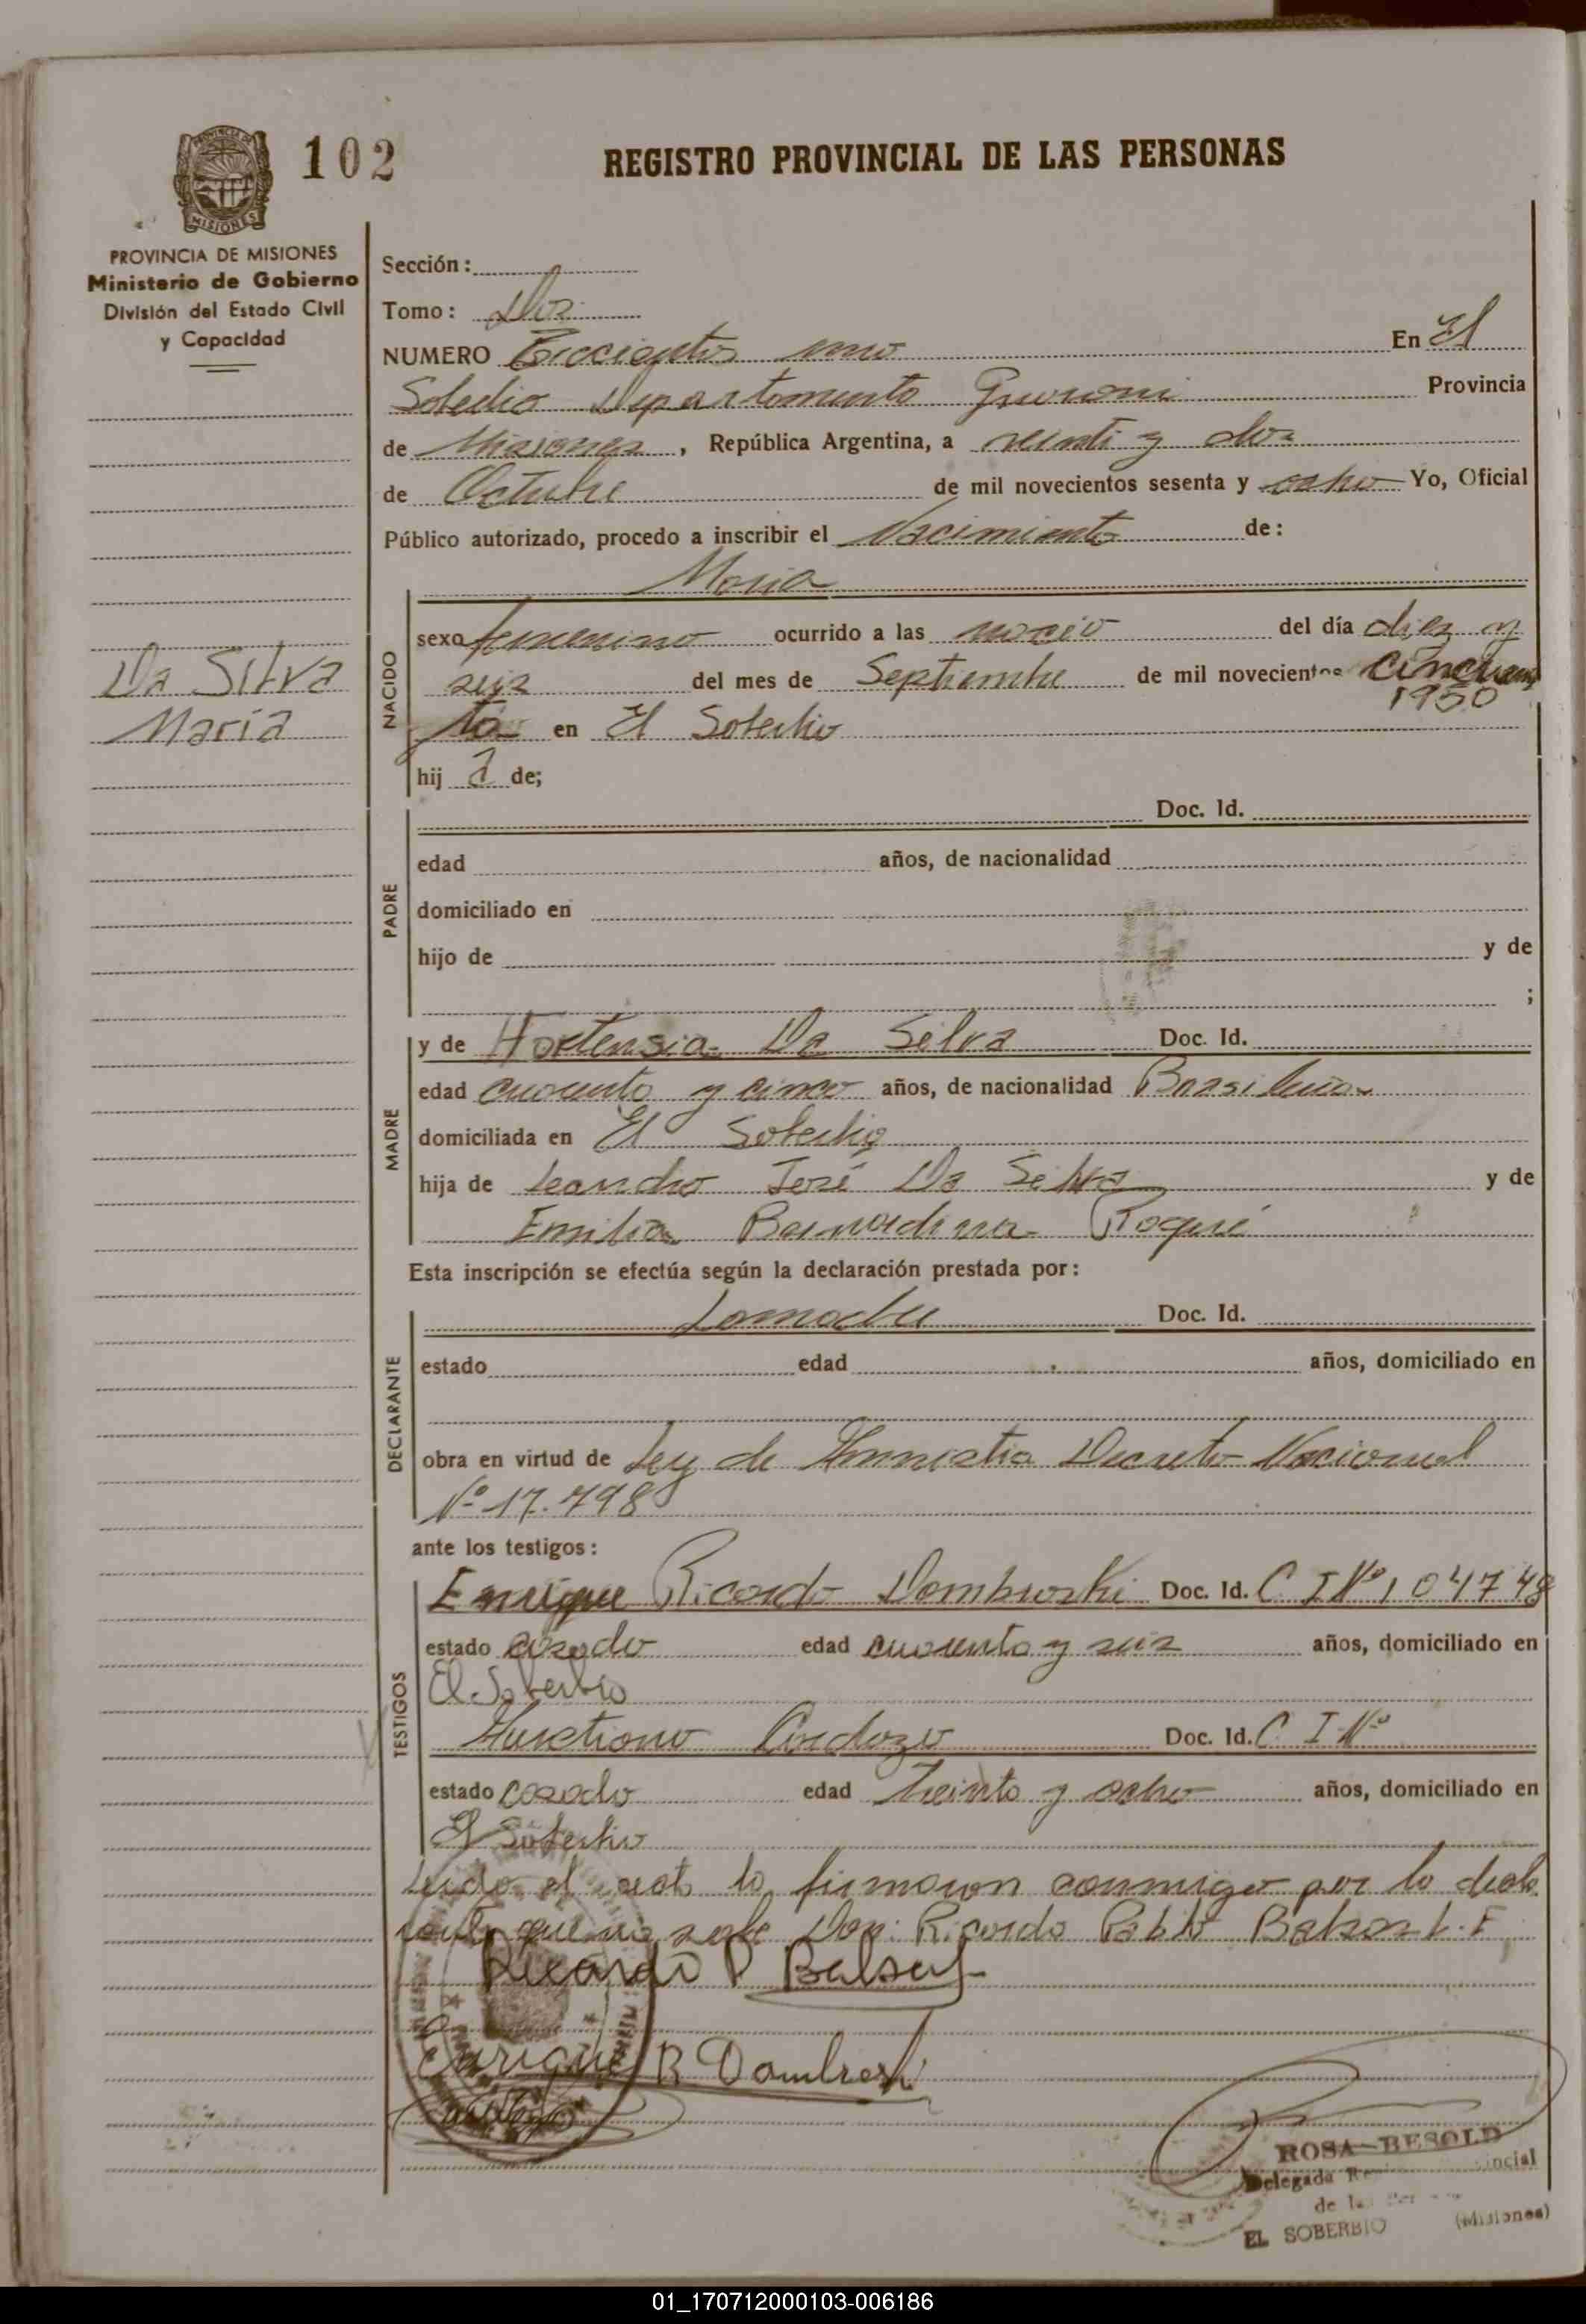 102
REGISTRO PROVINCIAL DE LAS PERSONAS
MISIONES
PROVINCIA DE MISIONES
Ministerio de Gobierno
División del Estado Civil
y Capacidad
Sección:
Tomo: Dos
NUMERO Trecientos uno En El
Soberbio Departamento Guarani Provincia
de Misiones, República Argentina, a veinti y dos
de Octubre de mil novecientos sesenta y ocho Yo, Oficial
Público autorizado, procedo a inscribir el Nacimiento de:
Maria
NACIDO
sexo femenino ocurrido a las del día diez y
seis del mes de Septiembre de mil novecientos cincuen
1950
ta en El Soberbio
hij a de;
Da Silva
Maria
PADRE
Doc. Id.
edad años, de nacionalidad
domiciliado en
hijo de y de
;
MADRE
y de Hortensia Da Silva Doc. Id.
edad cuarenta y cinco años, de nacionalidad Brasileña
domiciliada en El Soberbio
hija de Leandro José Da Silva y de
Emilia Bernardina Roque
Esta inscripción se efectúa según la declaración prestada por:
DECLARANTE
La madre Doc. Id.
estado edad años, domiciliado en
obra en virtud de Ley de Amnistia Decreto Nacional
Nº 17.798
ante los testigos:
TESTIGOS
Enrique Ricardo Dombroski Doc. Id. C I Nº 1 047 48
estado casado edad cuarenta y seis años, domiciliado en
El Soberbio
Cardozo Doc. Id. C I Nº
estado casado edad treinta y ocho años, domiciliado en
El Soberbio
Leido el acta la firmaron conmigo por la decla
rante que no sabe Don: Ricardo Pablo
Ricardo P
Enrique R Dombroski
ROSA BESOLD
Delegada
de
EL SOBERBIO (Misiones)
01_170712000103-006186